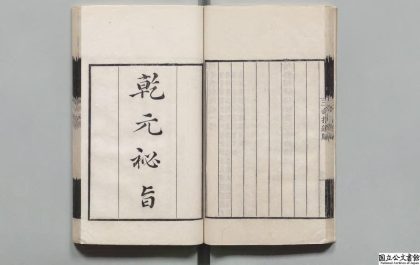 乾元秘旨
国立公文書館
National Archives of Japan